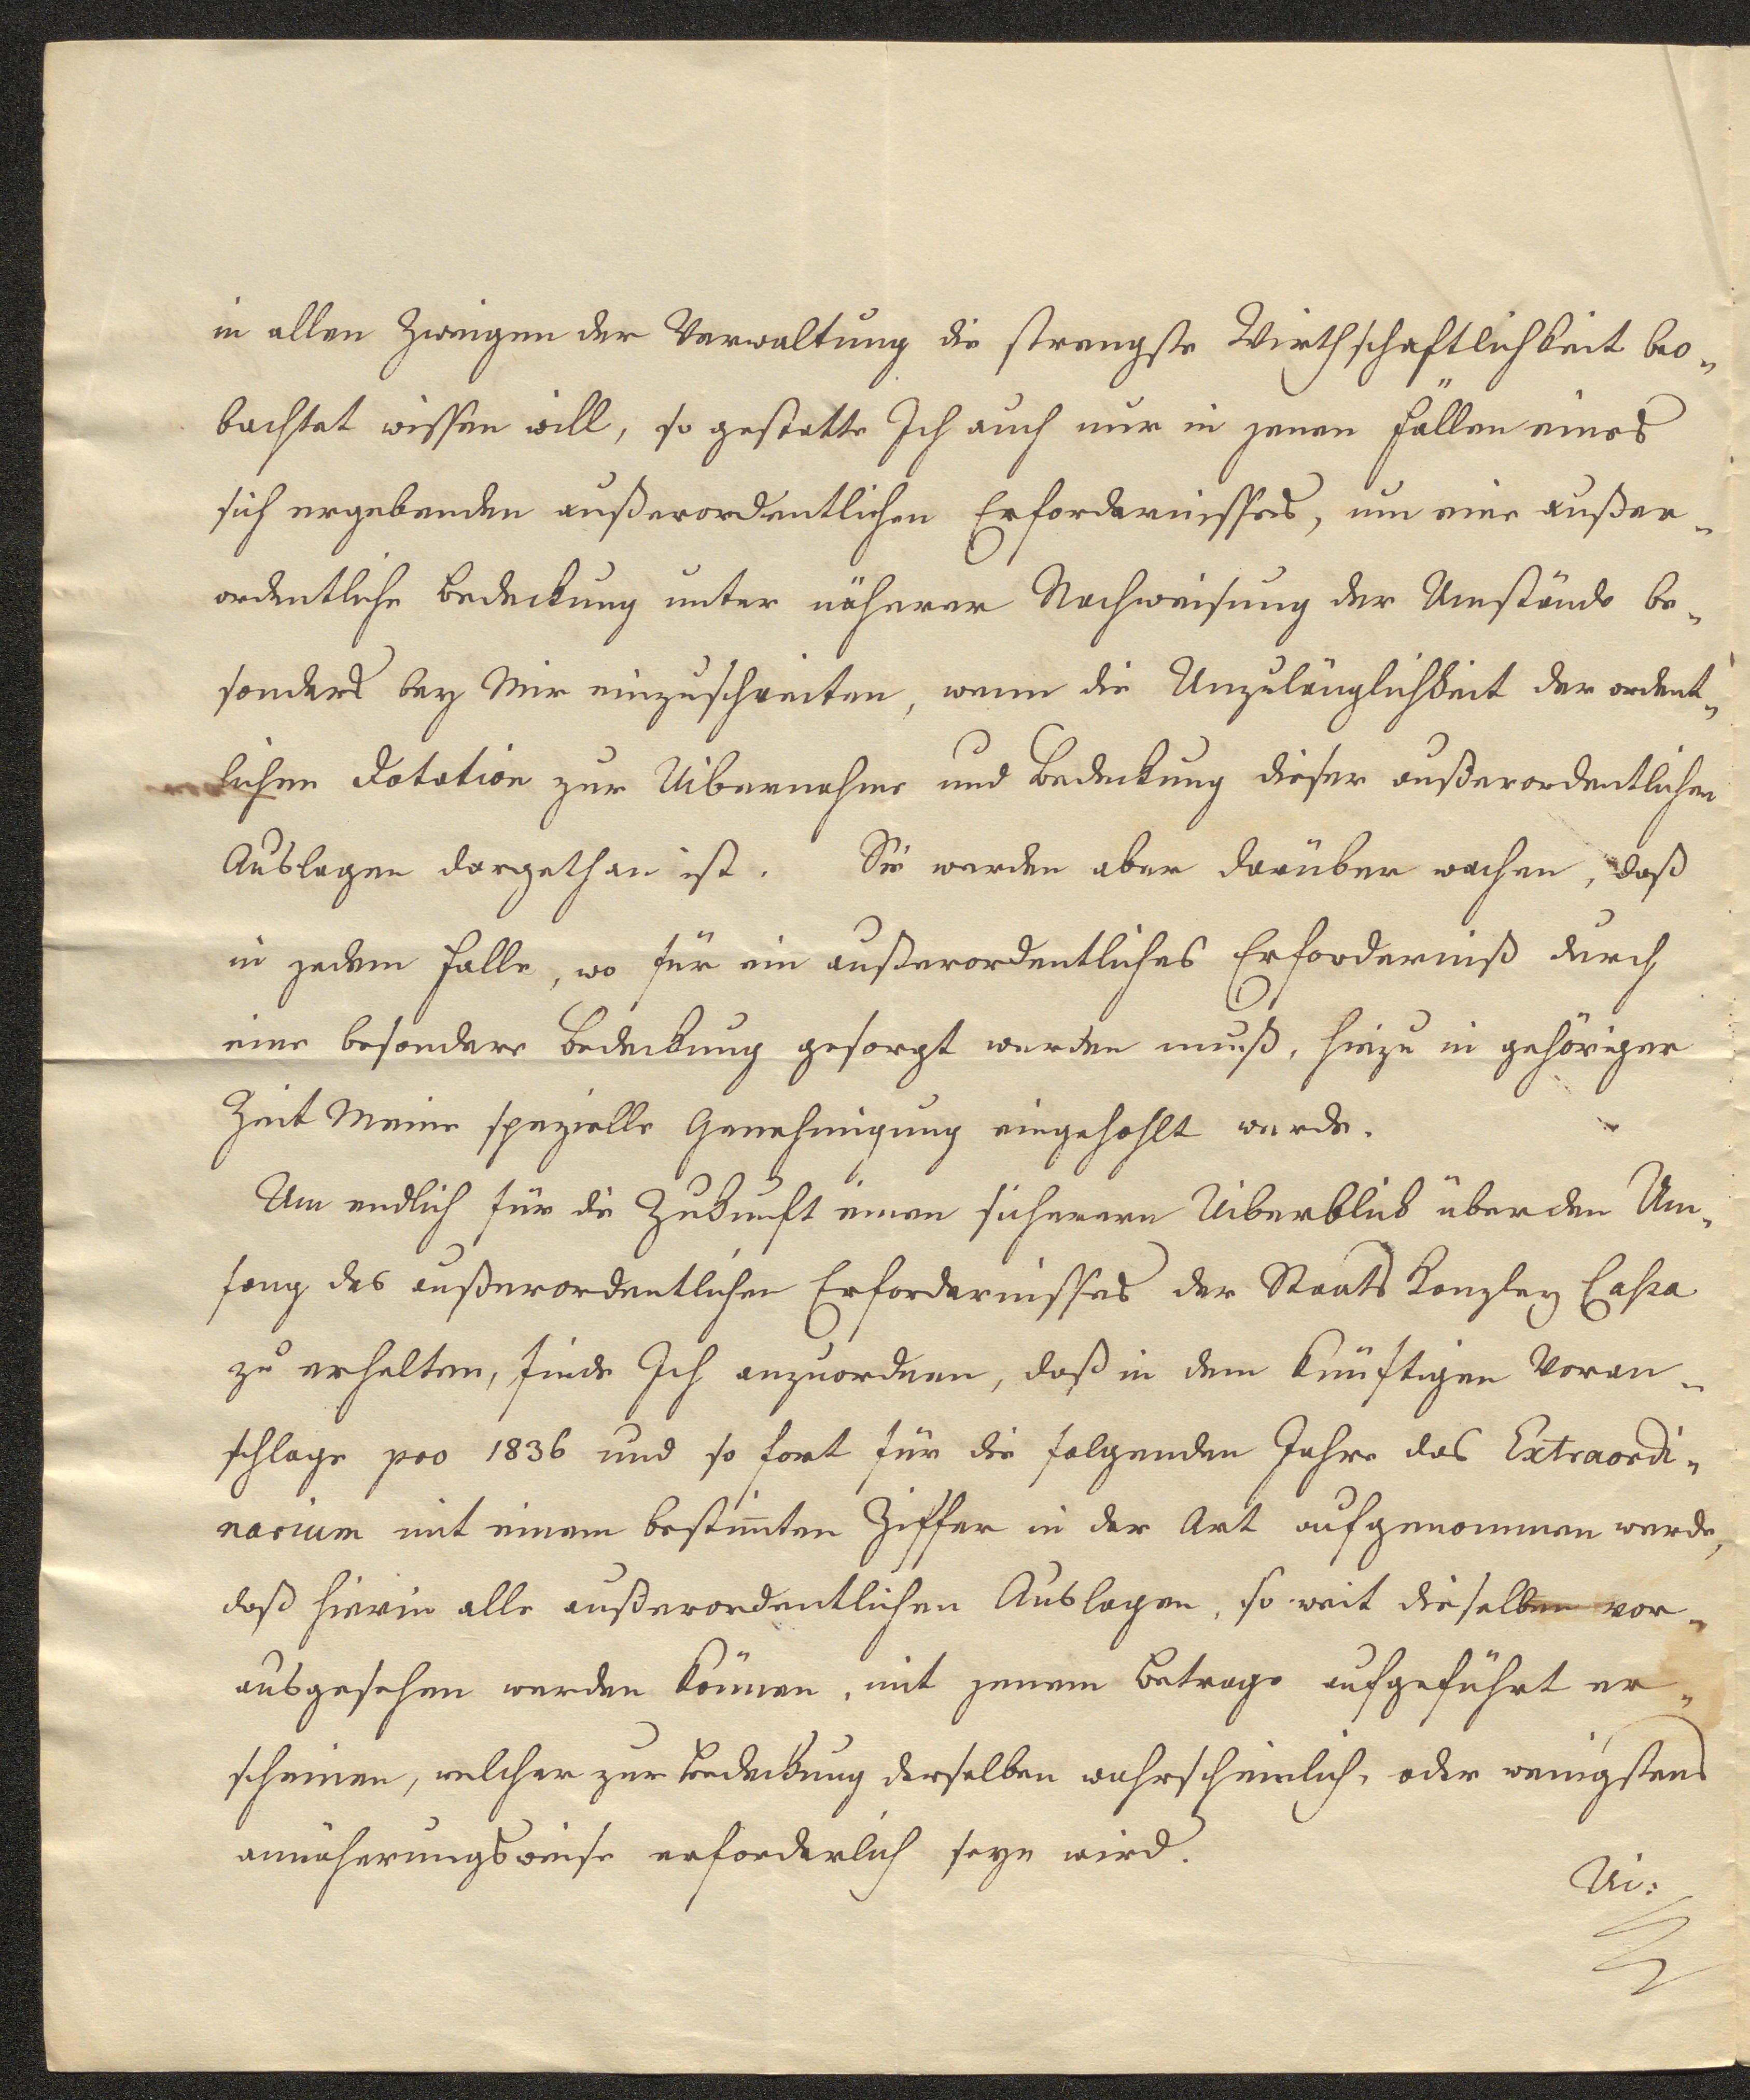 in allen Zweigen der Verwaltung die strengste Wirthschaftlichkeit beo-
bachtet wissen will, so gestatte Ich auch nur in jenen Fällen eines
sich ergebenden außerordentlichen Erfordernisses, um eine außer-
ordentliche Bedeckung unter näherer Nachweisung der Umstände be-
sonders bey Mir einzuschreiten, wenn die Unzulänglichkeit der ordent-
lichen Dotation zur Uibernahme und Bedeckung dieser außerordentlichen
Auslagen dargethan ist. Sie werden aber darüber wachen, daß
in jedem Falle, wo für ein außerordentliches Erforderniß durch
eine besondere Bedeckung gesorgt werden muß, hiezu in gehöriger
Zeit Meine spezielle Genehmigung eingehohlt werde.
Um endlich für die Zukunft einen sicheren Uiberblick über den Um-
fang des außerordentlichen Erfordernisses der Staats Kanzley Cassa
zu erhalten, finde Ich anzuordnen, daß in dem künftigen Voran-
schlage pro 1836 und so fort für die folgenden Jahre das Extraordi-
narium mit einem bestimten Ziffer in der Art aufgenommen werde,
daß hierin alle außerordentlichen Auslagen, so weit dieselben vor-
ausgesehen werden können, mit jenem Betrage aufgeführt er-
scheinen, welcher zur Bedeckung derselben wahrscheinlich, oder wenigstens
annäherungsweise erforderlich seyn wird.
Ui: